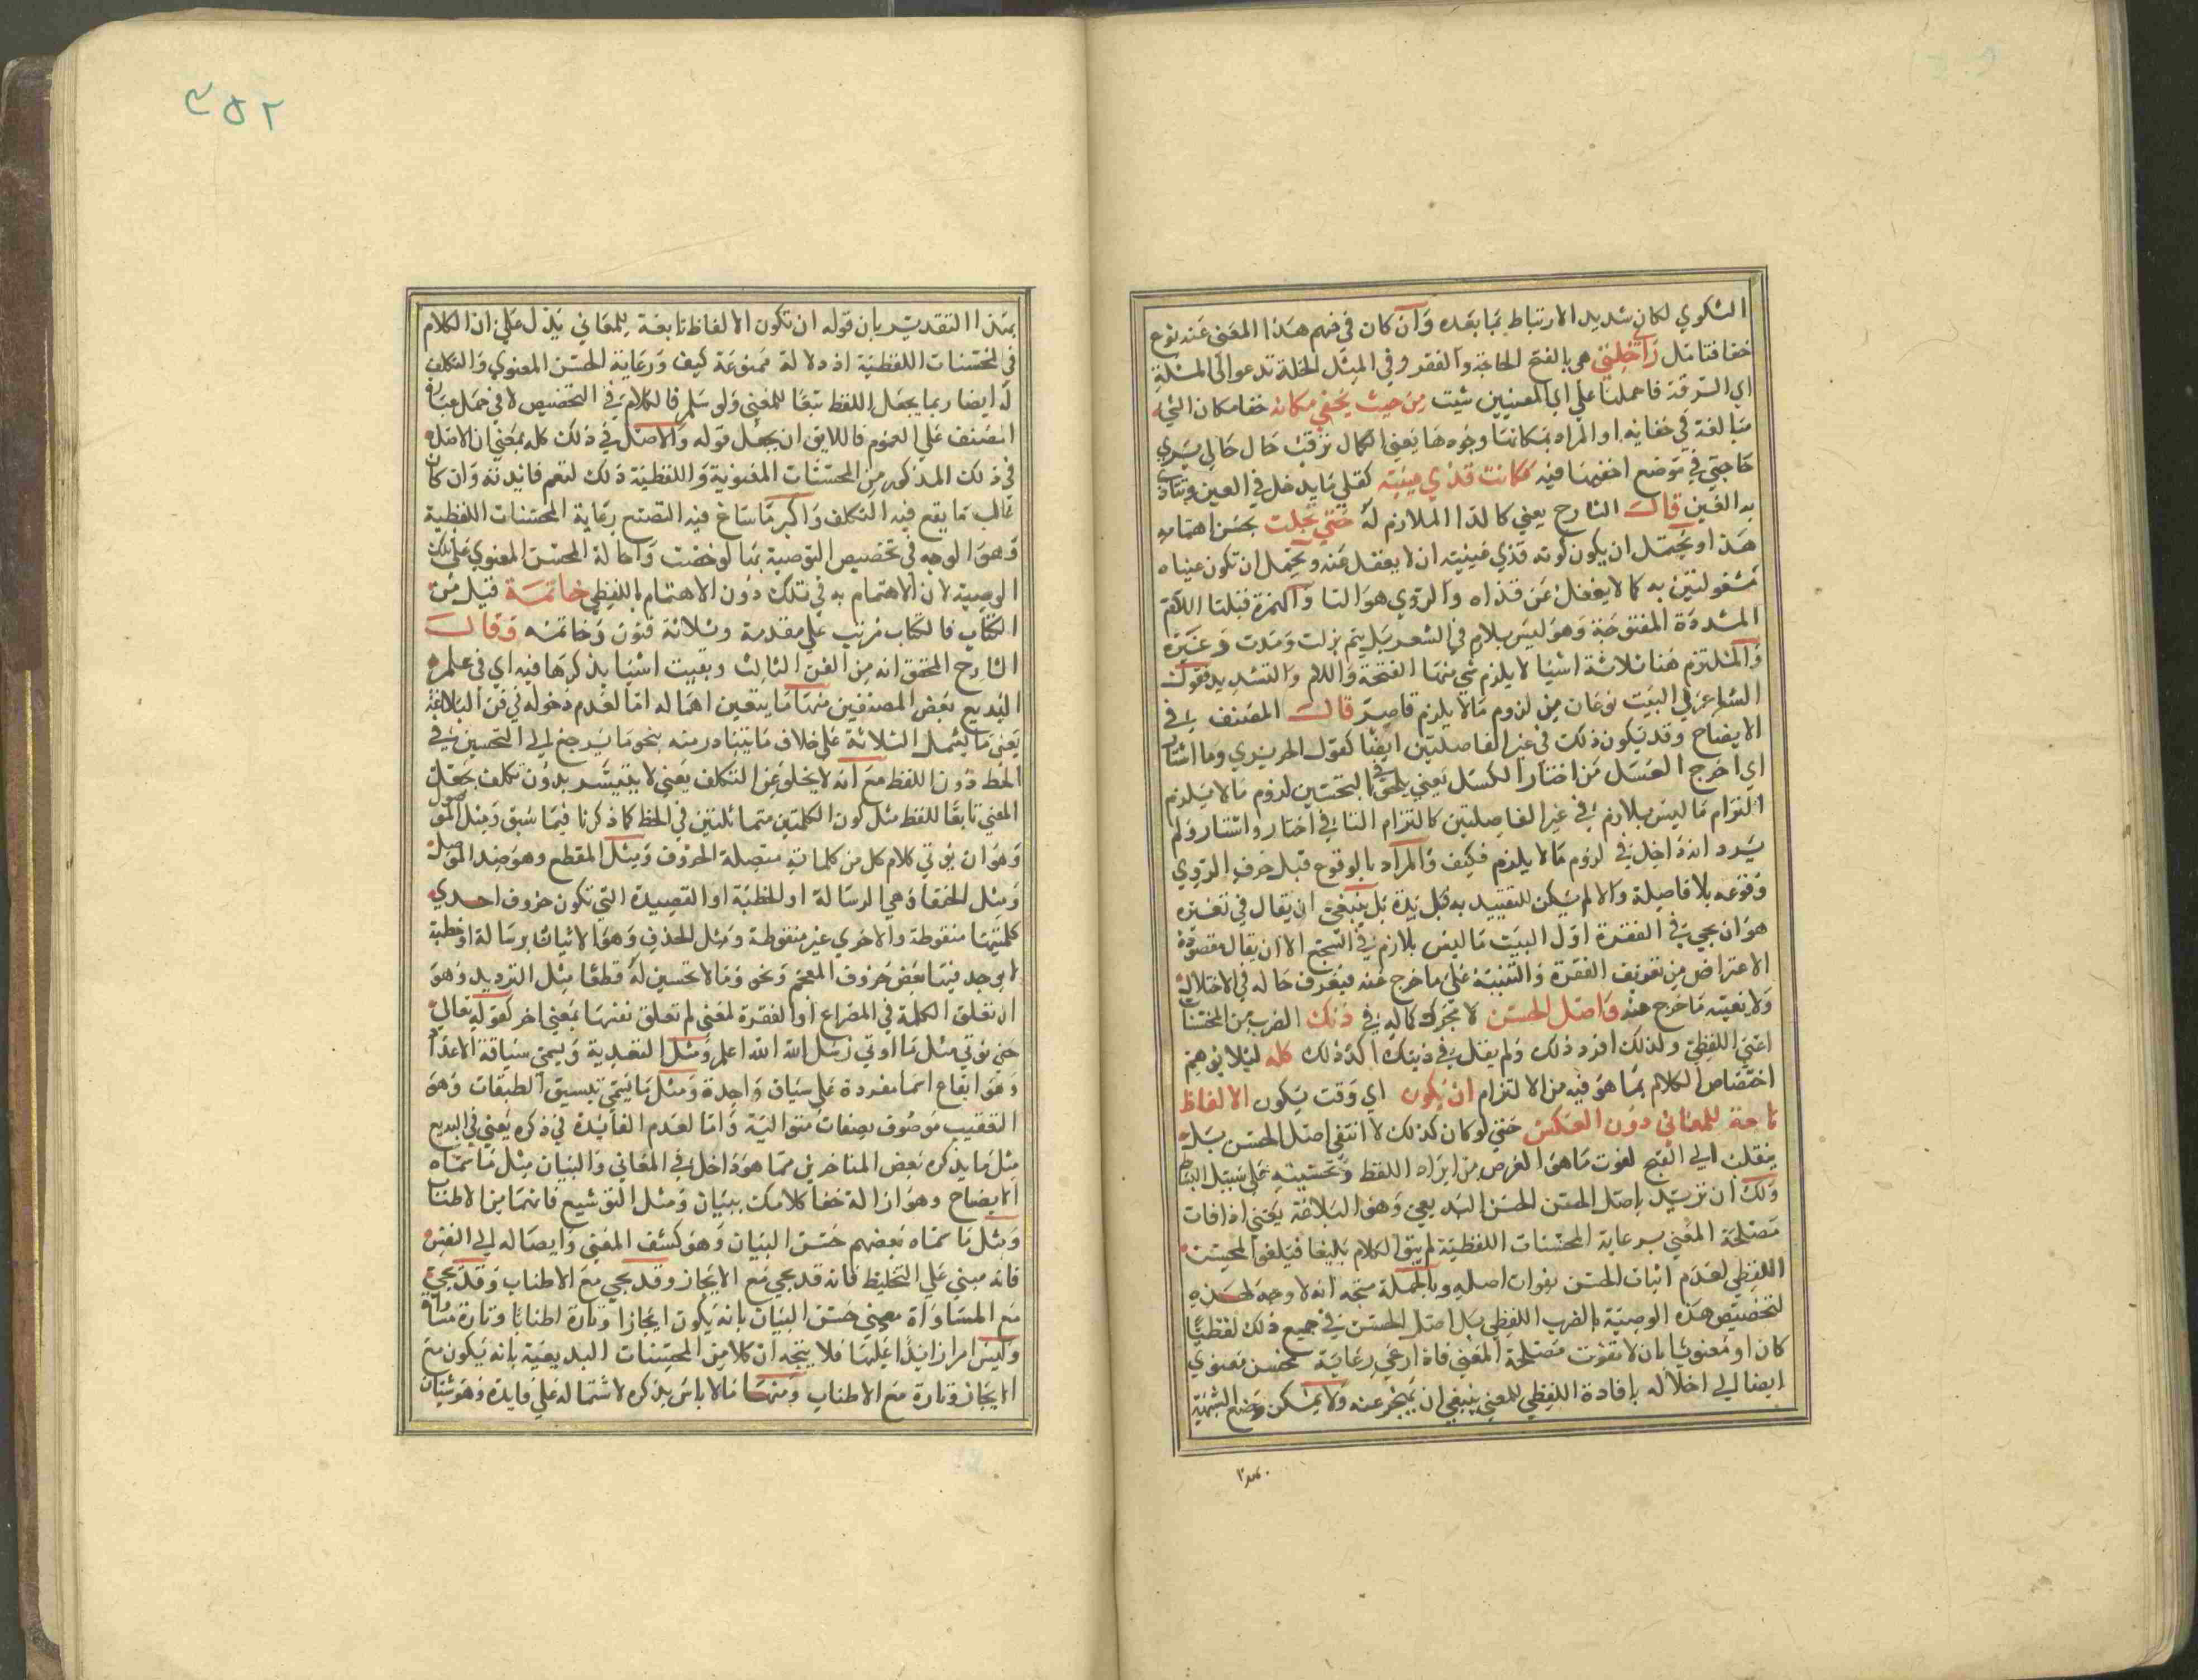 الشكوي لكان شديد الارتباط بما بعده وان كان في فهم هذا المعني عنه نوع
خفا فتامل راي خلتي هي بالفتح الحاجة والفقر وفي المثل الخلة تدعوا الى السلة
اي السرقة فاحملنا علي اي المعنيين شيت من حيث يخفي مكانه خفا مكان الشيء
مبالغة في خفايه او المراد بمكانها وجوهها يعني لكمال ترقب حال حالي يري
حاجتي في موضع اخفيها فيه فكانت قذي عينيه كقلي ما يدخل في العين ويتاذي
به العين قال الشارح يعني كالدا الملازم له حتي تجلت بحسن اهتمامه
هذا ويحتمل ان يكون كونه قذي عينيه ان لا يغفل عنه ويحتمل ان تكون عيناه
مشغولتين به كما لا يغفل عن قذاه والروي هو التا والتزم قبلها اللام
المشددة المفتوحة وهو ليس بلازم في الشعر بل يتم بزلت ومدت وغيره
والملتزم هنا ثلاثة اشيا لا يلزم شي منها الفتحة واللام والتشديد فقول
الشاعر في البيت نوعان من لزوم ما لا يلزم قاصر قال المصنف في
الايضاح وقد يكون ذلك في غير الفاصلتين ايضا كقول الحريري وما اشتار
اي اخرج العسل من اختار الكسل يعني يلحق في التحسين لزوم ما لا يلزم
التزام ما ليس بلازم في غير الفاصلتين كالتزام التا في اختار واشتار ولم
يرد انه داخل في لزوم ما لا يلزم فكيف والمراد بالوقوع قبل حرف الروي
وقوعه بلا فاصلة والا لم يكن للتقييد به قبل يدة بل ينبغي ان يقال في تفسيره
هو ان يجي في الفقرة اول البيت ما ليس بلازم في السجع الا ان يقال مقصوده
الاعتراض من تعريف الفقرة والتنبيه علي ما خرج عنه فيعرف حاله في الاختلال
ولا نعينه ما خرج عنه واصل الحسن لا يجرك كماله في ذلك الضرب من المحسنات
اعني اللفظي ولذلك افرد ذلك ولم يقل في ذينك اكد ذلك كله ليلا يوهم
اختصاص الكلام بما هو فيه من الالتزام ان يكون اي وقت يكون الالفاظ
تابعة للمعاني دون العكس حتي لو كان كذلك لانتفي اصل الحسن بل
ينقلب الي القبح لفوت ما هو الغرض من ايراد اللفظ وتحسينه علي سبيل البيان
ولك ان تريد باصل الحسن الحسن البديعي وهو البلاغة يعني اذا فات
مصلحة المعني برعاية المحسنات اللفظية لم يبق الكلام بليغا فيلغو المحسن
اللفظي لعدم اثبات الحسن بفوات اصله وبالجملة متجه انه لا وجه لهذه
لتخصيص هذه الوصية بالضرب اللفظي بل اصل الحسن في جميع ذلك لفظيا
كان او معنويا بان لا تفوت مصلحة المعني فاذا رعي رعاية محسن معنوي
ايضا الي اخلاله بافادة اللفظي للمعني ينبغي ان يتحرز عنه ولا يمكن وضع الشبهة
بهذا التقدير بان قوله ان تكون الالفاظ تابعة للمعاني يدل علي ان الكلام
في المحسنات اللفظية اذ دلالة ممنوعة كيف ورعاية الحسن المعنوي والتكلف
له ايضا ربما يجعل اللفظ تبعا للمعني ولو سلم فالكلام في التخصيص لا في حمل عبارة
المصنف علي العموم فاللايق ان يجعل قوله والاصل في ذلك كله بمعني ان الاصل
في ذلك المذكور من المحسنات المعنوية واللفظية ذلك لتعم فايدته وان كان
غالب ما يقع فيه التكلف واكبر ما ساغ فيه التصنع رعاية المحسنات اللفظية
وهو الوجه في تخصيص التوصية بما لو خصت واحالة المحسن المعنوي علي تلك
الوصية لان الاهتمام به في تلك دون الاهتمام باللفظي خاتمة قيل من
الكتاب فالكتاب مرتب علي مقدمة وثلاثة فنون وخاتمة وقال
الشارح المحقق انه من الفن الثالث وبقيت اشيا يذكرها فيه اي في علم
البديع بعض المصنفين منها ما يتعين اهماله اما لعدم دخوله في فن البلاغة
يعني ما يشمل الثلاثة علي خلاف ما يتبادر منه بنحو ما يرجع الي التحسين في
الخط دون اللفظ مع انه لا يخلو عن التكلف يعني لا يتيسر بدون تكلف بجعل
المعني تابعا للفظ مثل كون الكلمتين متماثلتين في الخط كما ذكرنا فيما سبق ومثل الموصول
وهو ان يوتي كلام كل من كلماته متصلة الحروف ومثل المقطع وهو ضد الموصل
ومثل الخيفاء وهي الرسالة او الخطبة او القصيدة التي تكون حروف احدي
كلمتيها منقوطة والاخري غير منقوطة ومثل الحذف وهو الاتيان برسالة او خطبة
لا يوجد فيها بعض حروف المعجم ونحو وما لا تحسين له قطعا مثل الترديد وهو
ان تعلق الكلمة في المصراع او الفقرة لمعني لم تعلق نفسها بمعني اخر كقوله تعالي
حتي نوتي مثل ما اوتي رسل الله الله اعلم ومثل التعديد ويسمي سياقة الاعداد
وهو ايقاع اسما مفردة علي سياق واحدة ومثل ما يسمي تنسيق الطبقات وهو
التعقيب موصوف بصفات متوالية واما لعدم الفايدة في ذكره يعني في البديع
مثل ما يذكره بعض المتاخرين مما هو داخل في المعاني والبيان مثل ما سماه
الايضاح وهو ازالة خفا كلامك ببيان ومثل التوشيع فانهما من الاطناب
ومثل ما سماه بعضهم حسن البيان وهو كشف المعني وايصاله الي النفس
فانه مبني علي التخليط فانه قد يجي مع الايجاز وقد يجي مع الاطناب وقد يجي
مع المساواة معني حسن البيان بانه يكون ايجازا وتارة اطنابا وتارة مساواة
وليس امرا زايدا عليها فلا يتجه ان كلا من المحسنات البديعية بانه يكون مع
الايجاز وتارة مع الاطناب ومنها ما لا باس بذكره لاشتماله علي فايدة وهو شيئان